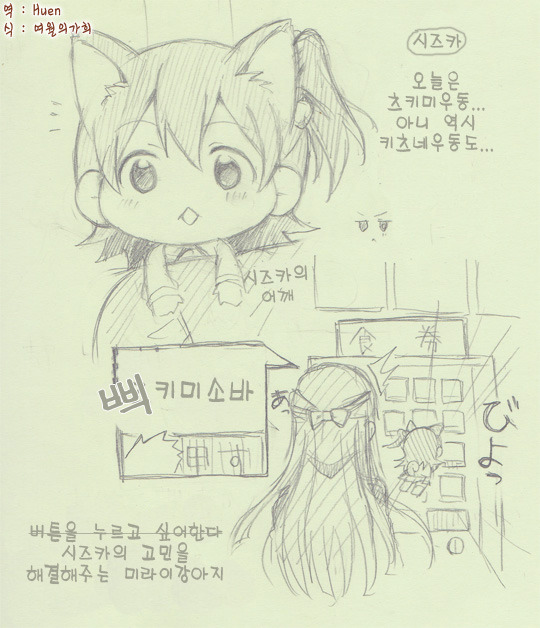 역 : Huen
식 : 여월의가희
시즈카
오늘은
츠키미우동...
아니 역시
키츠네우동도...
시즈카의
어깨
食券
삐삑 키미소바
あっ
びよっ
버튼을 누르고 싶어한다
시즈카의 고민을
해결해주는 미라이강아지